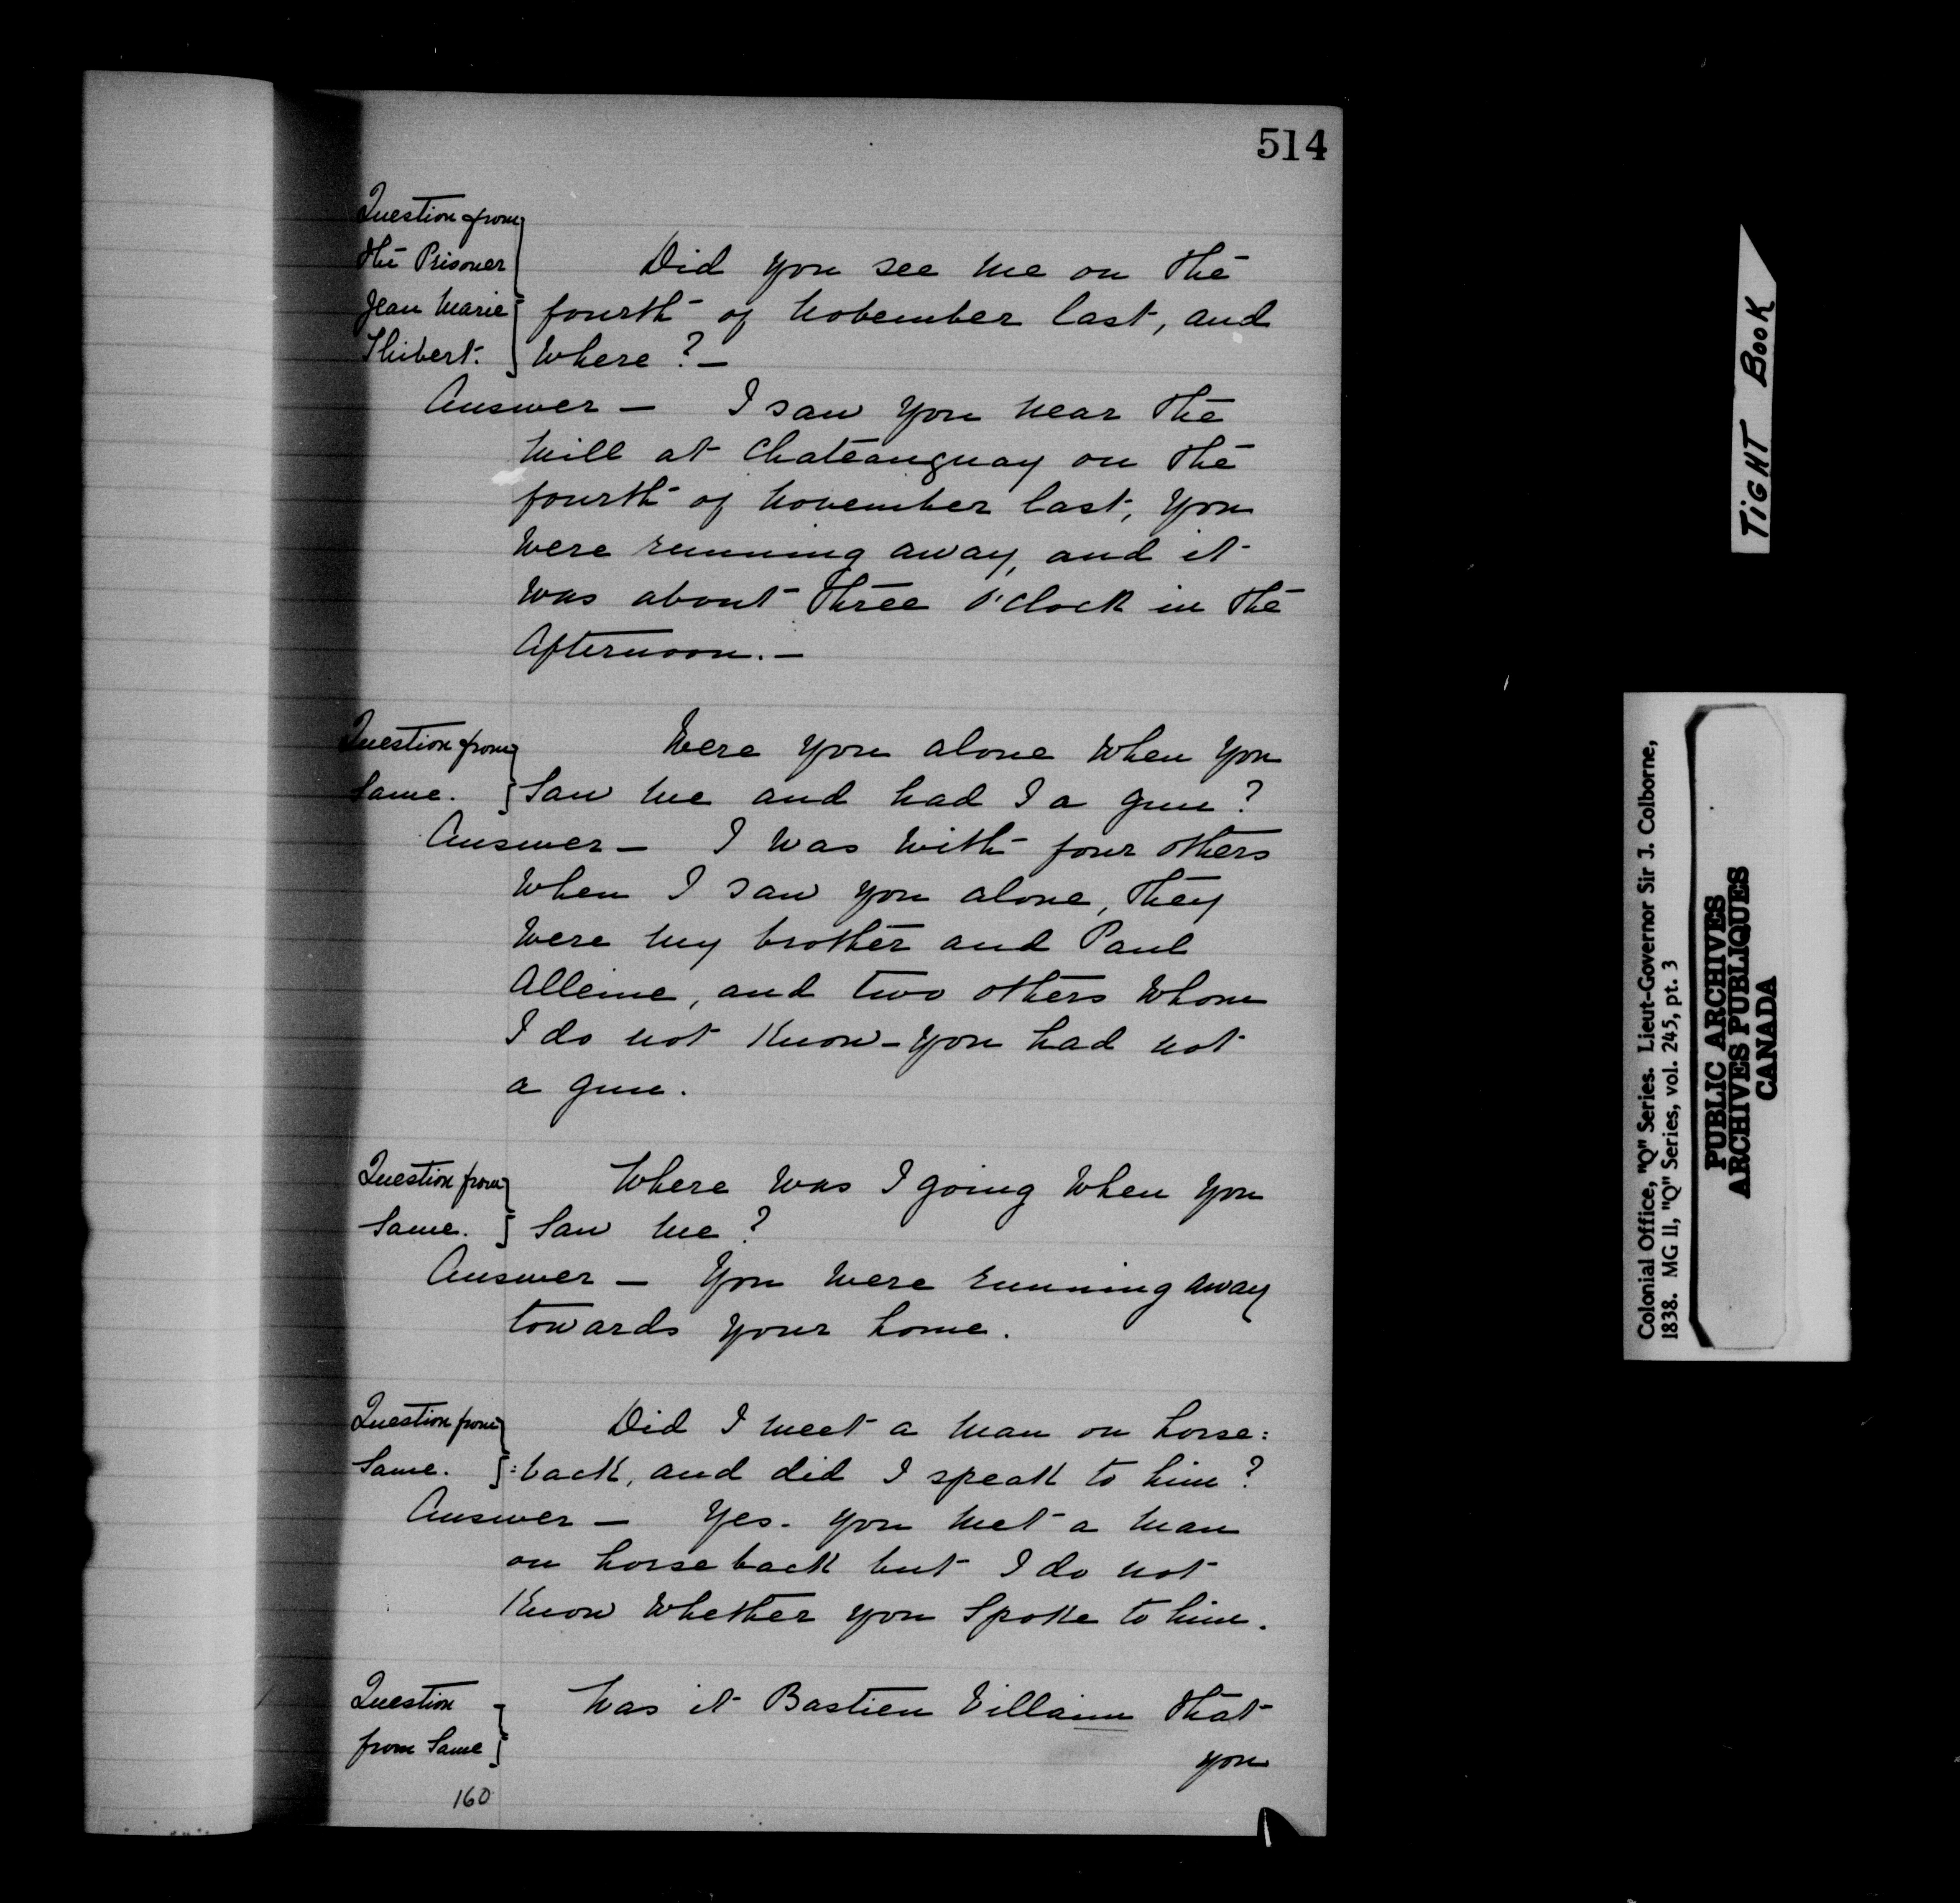 514
Question from
the Prisoner
Jean Marie
Thibert.
Did you see me on the
fourth of November last, and
where? —
Answer — I saw you near the
mill at Chateauguay on the
fourth of November last, you
were running away, and it
was about three o'clock in the
afternoon. —
Question from
Same.
Were you alone when you
saw me and had I a gun?
Answer — I was with four others
when I saw you alone, they
were my brother and Paul
Alleine, and two others whom
I do not know - you had not
a gun.
Question from
Same.
Where was I going when you
saw me?
Answer — You were running away
towards your home.
Question from
Same.
Did I meet a man on horse:
:back, and did I speak to him?
Answer — Yes. you met a man
on horseback but I do not
know whether you spoke to him.
Question
from Same
Was it Bastien Villainn that
you
160
TIGHT BOOK
Colonial Office, "Q" Series. Lieut-Governor Sir J. Colborne,
1838. MG 11, "Q" Series, vol. 245, pt. 3
PUBLIC ARCHIVES
ARCHIVES PUBLIQUES
CANADA